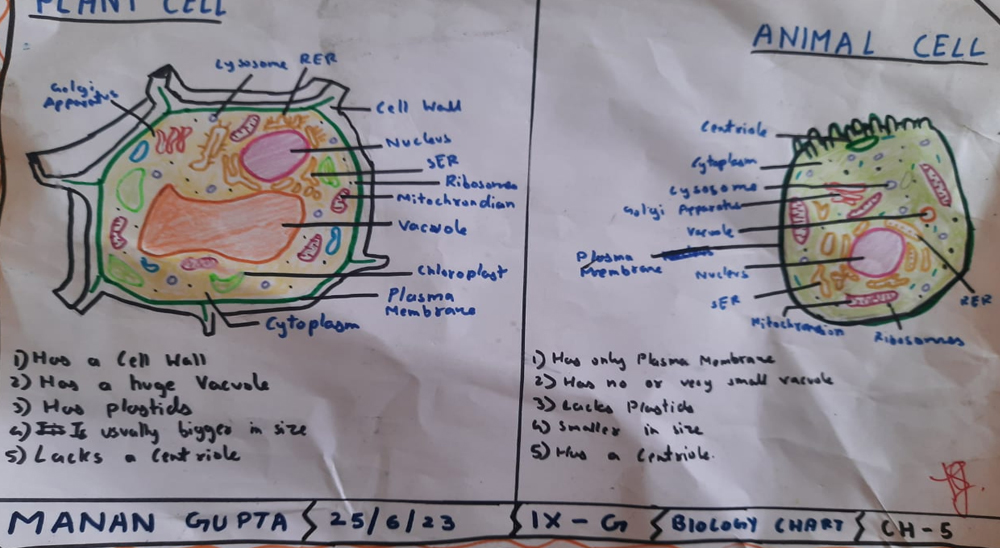 PLANT CELL
Lysosome
RER
Golgi
Apparatus
Cell Wall
Nucleus
SER
Ribosomes
Mitochrondian
Vacuole
Chloroplast
Plasma
Membrane
Cytoplasm
1) Has a Cell Wall
2) Has a huge Vacuole
3) Has plastids
4) Is usually bigger in size
5) Lacks a Centriole
ANIMAL CELL
Centriole
Cytoplasm
Lysosome
Golgi Apparatus
Vacuole
Plasma
Membrane
Nucleus
SER
Mitochrondian
Ribosomes
RER
1) Has only Plasma Membrane
2) Has no or very small vacuole
3) Lacks Plastids
4) Smaller in size
5) Has a Centriole.
MANAN GUPTA 25/6/23 IX-G BIOLOGY CHART CH-5